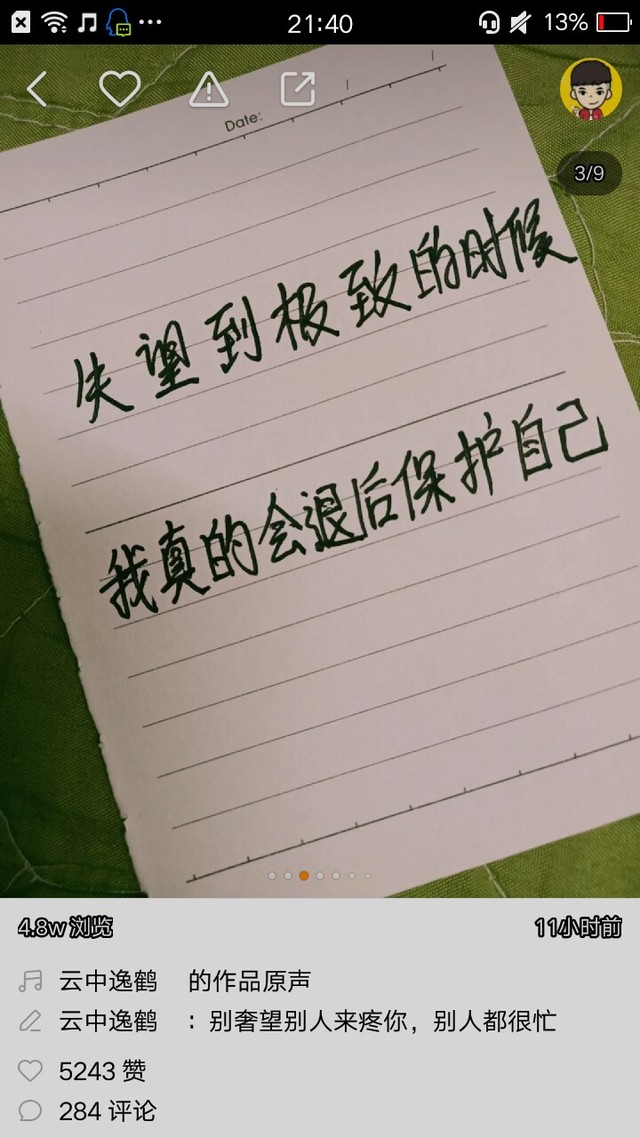 21:40
13%
Date:
3/9
失望到极致的时候
我真的会退后保护自己
4.8w 浏览
11小时前
云中逸鹤 的作品原声
云中逸鹤 ：别奢望别人来疼你，别人都很忙
5243 赞
284 评论